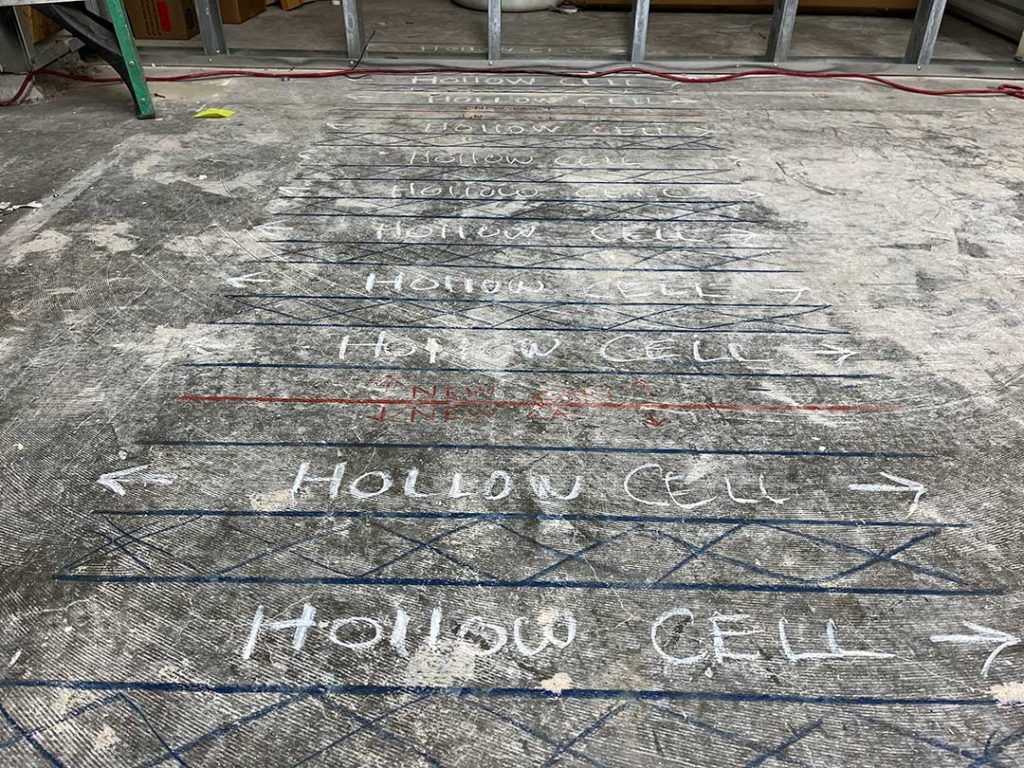 HOLLOW CELL
HOLLOW CELL
HOLLOW CELL
HOLLOW CELL
HOLLOW CELL
HOLLOW CELL
HOLLOW CELL
HOLLOW CELL
HOLLOW CELL
NEW
NEW
HOLLOW CELL
HOLLOW CELL